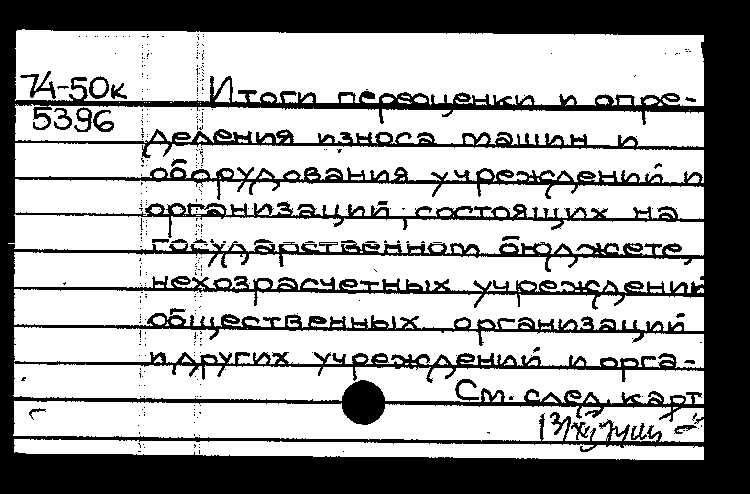 74-50к
5396
Итоги переоценки и опре-
деления износа машин и
оборудования учреждений и
организаций, состоящих на
государственном бюджете,
нехозрасчетных учреждений
общественных организаций
и других учреждений и орга-
См. след. карт